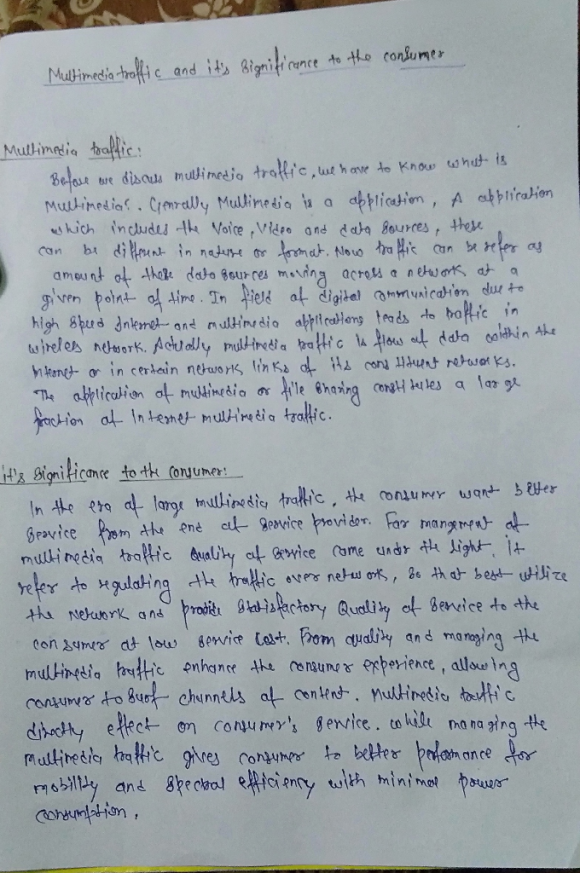 Multimedia traffic and it's Significance to the consumer
Multimedia traffic:
Before we discuss multimedia traffic, we have to know what is
Multimedia?. Genrally Multimedia is a application, A application
which includes the Voice, Video and data Sources, these
can be different in nature or format. Now traffic can be refer as
amount of these data sources moving across a network at a
given point of time. In field of digital communication due to
high speed Internet and multimedia applications leads to traffic in
wireless network. Actually multimedia traffic is flow of data within the
Internet or in certain network links of its constituent networks.
The application of multimedia or file sharing constitutes a large
fraction of Internet multimedia traffic.
it's Significance to the consumer:
In the era of large multimedia traffic, the consumer want better
Service from the end of service provider. For mangement of
multimedia traffic Quality of service come under the light. It
refer to regulating the traffic over network, so that best utilize
the Network and provide Statisfactory Quality of Service to the
consumer at low service cost. From quality and managing the
multimedia traffic enhance the consumer experience, allowing
consumer to surf channels of content. Multimedia traffic
directly effect on consumer's service. While managing the
multimedia traffic gives consumer to better performance for
mobility and spectral efficiency with minimal power
consumption.